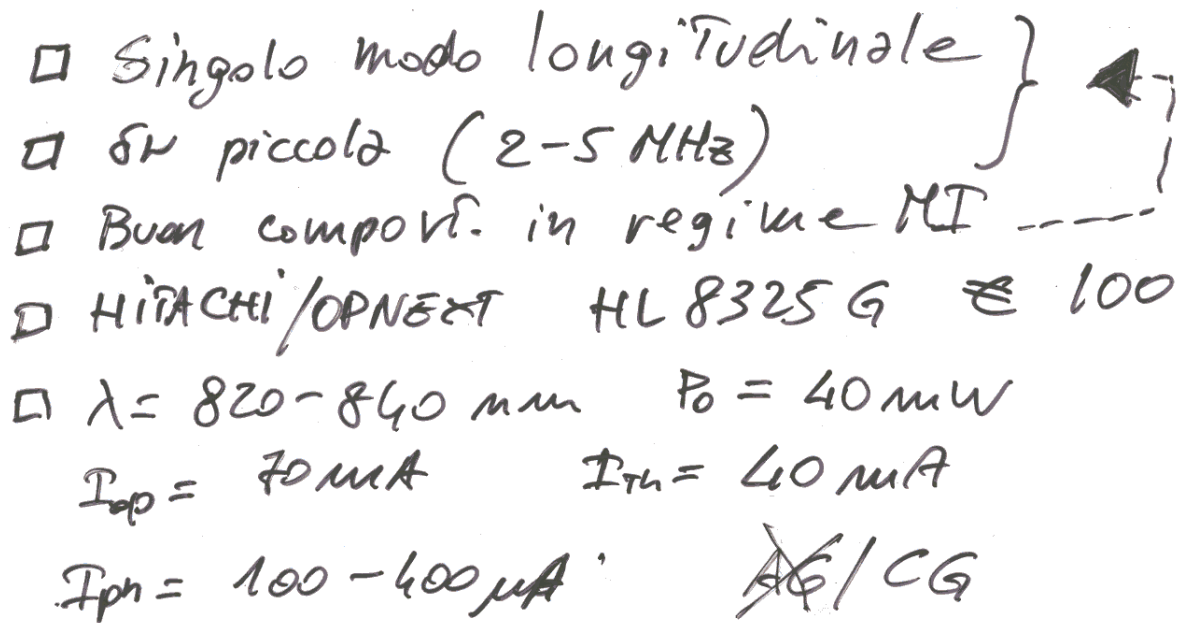 □ Singolo modo longitudinale
□ δν piccola (2-5 MHz)
□ Buon comport. in regime MI
□ HITACHI/OPNEXT HL8325G € 100
□ λ = 820-840 nm P₀ = 40 mW
Iop = 70 mA ITh = 40 mA
Iph = 100-400 μA AG/CG